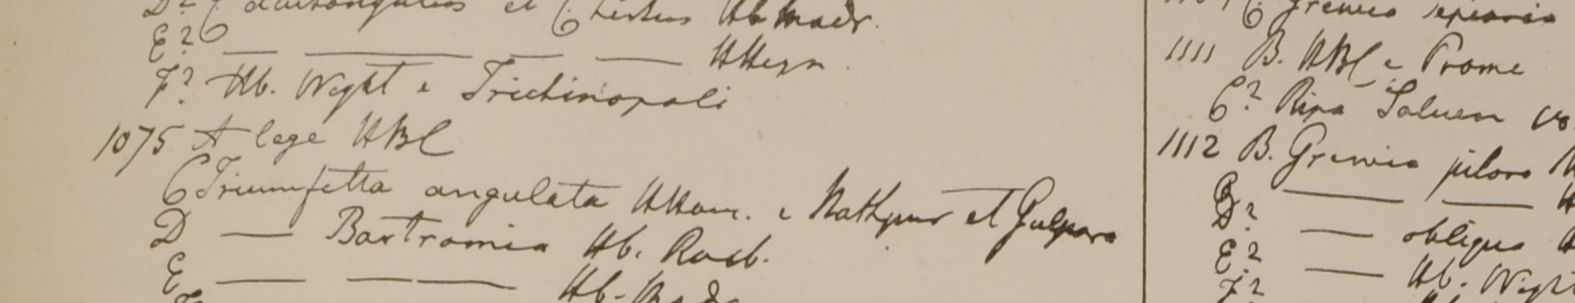 D? C acutangulus et C tristis Hb madr.
E? — — — HHeyn.
F? Hb. Wight e Trichinopoli
1075 A lege HBC
C Triumfetta angulata HHam. e Nathpur et Gulpara
D — Bartramia Hb. Roxb.
E — — Hb.
C. Grewia sepiaria
1111 B. HBC e Prome
C? Ripa Saluen
1112 B. Grewia pilosa
— —
D? — obliqua
E? — Hb. Wight
F?